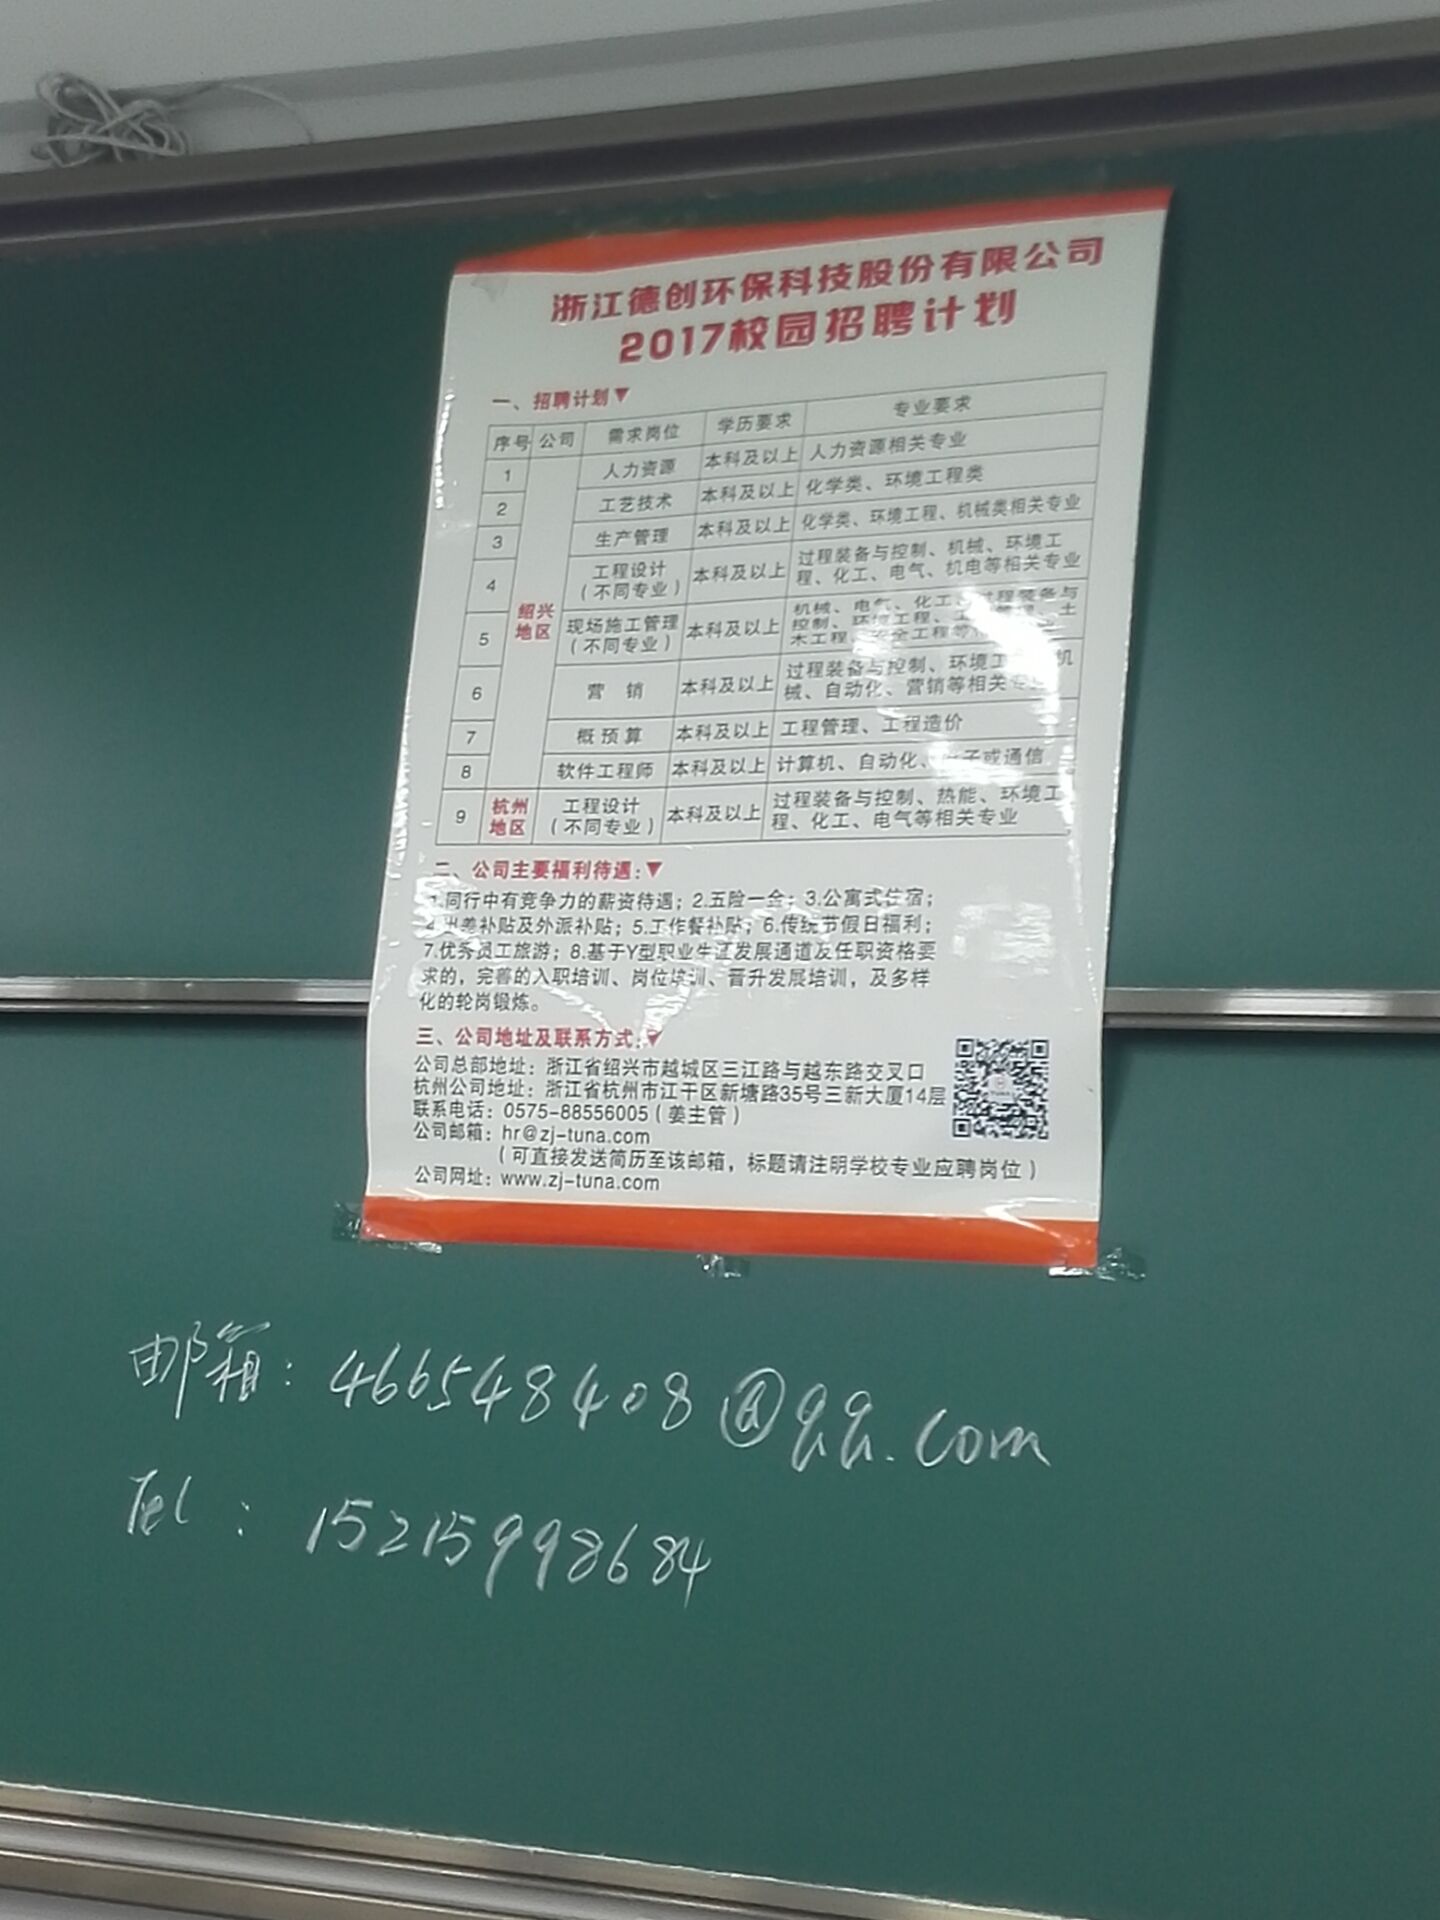 浙江德创环保科技股份有限公司
2017校园招聘计划
一、招聘计划▼
序号 公司 需求岗位 学历要求 专业要求
1 人力资源 本科及以上 人力资源相关专业
2 工艺技术 本科及以上 化学类、环境工程类
3 生产管理 本科及以上 化学类、环境工程、机械类相关专业
4 工程设计 本科及以上 过程装备与控制、机械、环境工
(不同专业) 程、化工、电气、机电等相关专业
绍兴
地区
5 现场施工管理 本科及以上 机械、电气、化工、过程装备与
(不同专业) 控制、环境工程、土
木工程、安全工程等
6 营 销 本科及以上 过程装备与控制、环境工 机
械、自动化、营销等相关专
7 概预算 本科及以上 工程管理、工程造价
8 软件工程师 本科及以上 计算机、自动化、 子或通信
9 杭州 工程设计 本科及以上 过程装备与控制、热能、环境工
地区 (不同专业) 程、化工、电气等相关专业
二、公司主要福利待遇:▼
1.同行中有竞争力的薪资待遇；2.五险一金；3.公寓式住宿；
4.出差补贴及外派补贴；5.工作餐补贴；6.传统节假日福利；
7.优秀员工旅游；8.基于Y型职业生涯发展通道及任职资格要
求的，完善的入职培训、岗位培训、晋升发展培训，及多样
化的轮岗锻炼。
三、公司地址及联系方式:▼
公司总部地址：浙江省绍兴市越城区三江路与越东路交叉口
杭州公司地址：浙江省杭州市江干区新塘路35号三新大厦14层
联系电话：0575-88556005（姜主管）
公司邮箱：hr@zj-tuna.com
（可直接发送简历至该邮箱，标题请注明学校专业应聘岗位）
公司网址：www.zj-tuna.com
邮箱：466548408@qq.com
Tel：15215998684